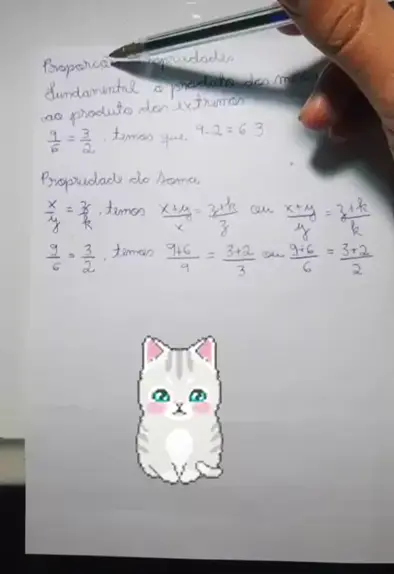 Proporção propriedades
fundamental o produto dos
ao produto dos extremos
9/6 = 3/2, temos que 9.2 = 6.3
Propriedade da soma
x/y = z/k, temos x+y/x = z+k/z ou x+y/y = z+k/k
9/6 = 3/2, temos 9+6/9 = 3+2/3 ou 9+6/6 = 3+2/2